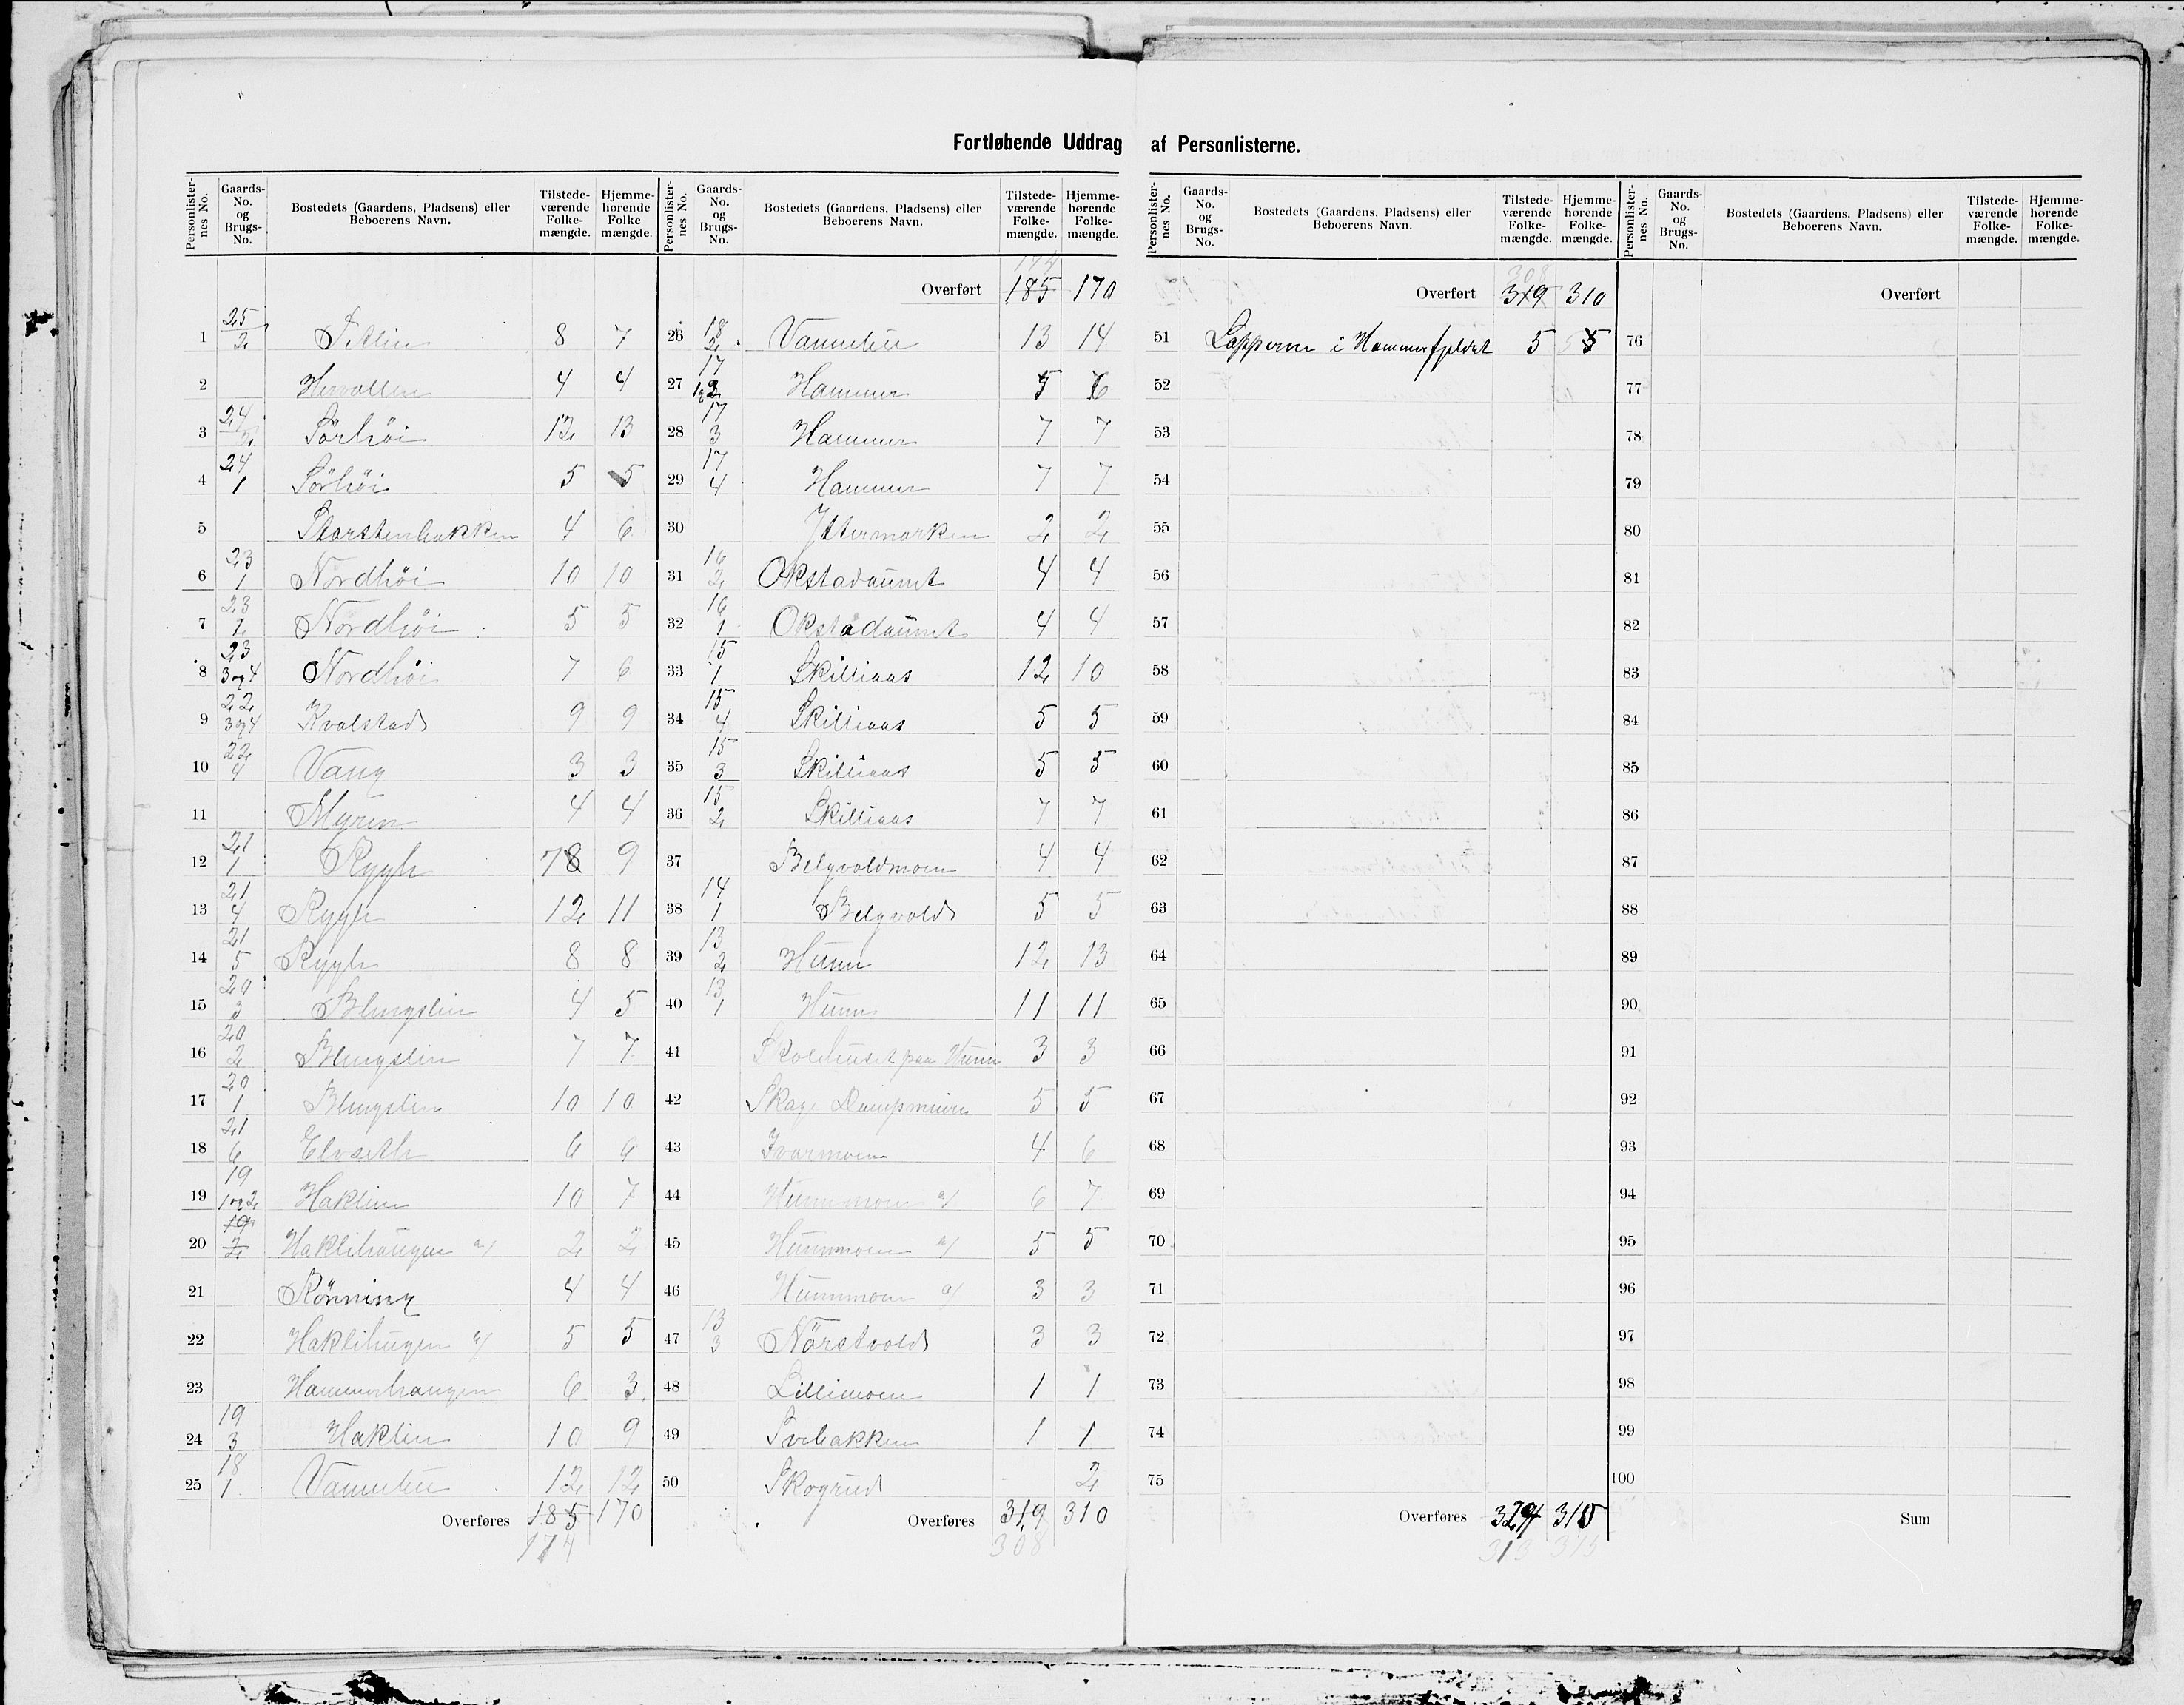 Fortløbende Uddrag af Personlisterne.
Personlisternes No. Gaards-No. og Brugs-No. Bostedets (Gaardens, Pladsens) eller Beboerens Navn. Tilstedeværende Folkemængde. Hjemmehørende Folkemængde.
1 25/2 8 7
2 4 4
3 24/2 Sörhöi 12 13
4 24/1 Sörhöi 5 5
5 Storstenbakken 4 6
6 23/1 Nordhöi 10 10
7 23/2 Nordhöi 5 5
8 23/3og4 Nordhöi 7 6
9 22/3og4 Kvalstad 9 9
10 22/4 Vang 3 3
11 Myren 4 4
12 21/1 Rygh 7 8 9
13 21/4 Rygh 12 11
14 21/5 Rygh 8 8
15 20/3 Blengslien 4 5
16 20/2 Blengslien 7 7
17 20/1 Blengslien 10 10
18 21/6 Elvseth 6 6
19 19/1og2 Haklien 10 7
20 19/2 Haklihaugen a/ 2 2
21 Rönning 4 4
22 Haklihugen a/ 5 5
23 Hammerhaugen 6 3
24 19/3 Haklien 10 9
25 18/1 12 12
Overføres 185 170
174
174
Overført 185 170
26 18/2 13 14
27 17/1 2 Hammer 5 6
28 17/3 Hammer 7 7
29 17/4 Hammer 7 7
30 Yttermarken 2 2
31 16/2 Okstadaunet 4 4
32 16/1 Okstadaunet 4 4
33 15/1 Skilliaas 12 10
34 15/4 Skilliaas 5 5
35 15/3 Skilliaas 5 5
36 15/2 Skilliaas 7 7
37 Belgvoldmoen 4 4
38 14/1 Belgvold 5 5
39 13/2 Hunn 12 13
40 13/1 Hunn 11 11
41 Skolehuset paa Hunn 3 3
42 Skage Dampmeieri 5 5
43 Ivarmoen 4 6
44 Hunnmoen a/ 6 7
45 Hunnmoen a/ 5 5
46 Hunnmoen a/ 3 3
47 13/3 Nörstvold 3 3
48 Lillemoen 1 1
49 1 1
50 Skogrud 2
Overføres 319 310
308
Personlisternes No. Gaards-No. og Brugs-No. Bostedets (Gaardens, Pladsens) eller Beboerens Navn. Tilstedeværende Folkemængde. Hjemmehørende Folkemængde.
308
Overført 319 310
51 Lapperne i Hammerfjeldet 5 5
52
53
54
55
56
57
58
59
60
61
62
63
64
65
66
67
68
69
70
71
72
73
74
75
Overføres 324 315
313 315
Overført
76
77
78
79
80
81
82
83
84
85
86
87
88
89
90
91
92
93
94
95
96
97
98
99
100
Sum